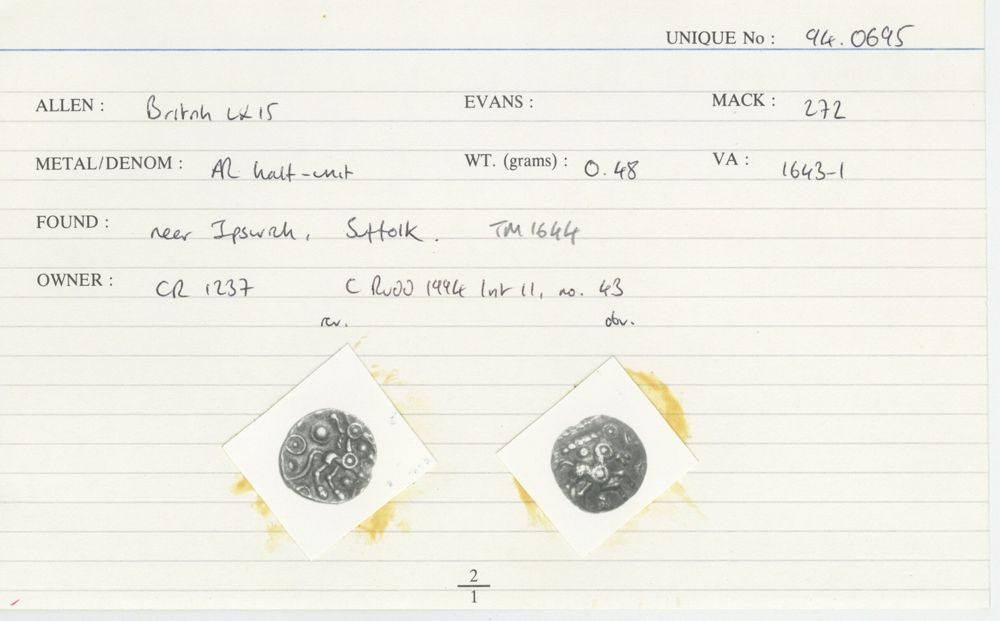 UNIQUE No : 94.0695
ALLEN : British LX15 EVANS : MACK : 272
METAL/DENOM : AR half-unit WT. (grams) : 0.48 VA : 1643-1
FOUND : near Ipswich, Suffolk. TM1644
OWNER : CR 1237 C RUDD 1994 list 11, no. 43
rev. obv.
2
1